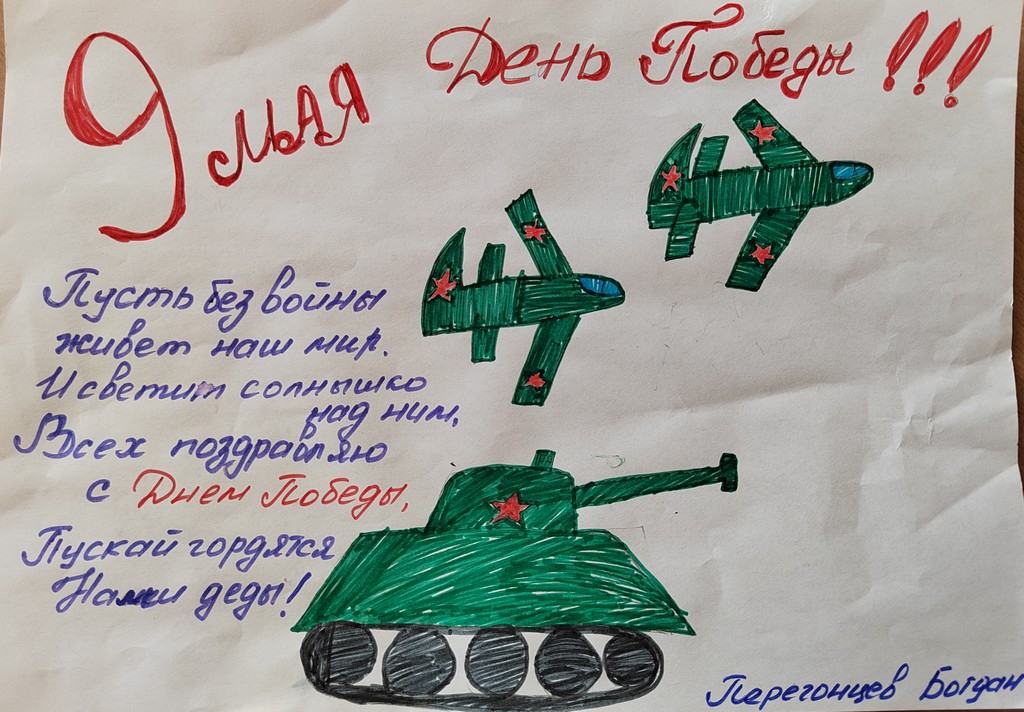 9 мая
День Победы !!!
Пусть без войны
живет наш мир.
И светит солнышко
над ним,
Всех поздравляю
с Днем Победы,
Пускай гордятся
Нами деды!
Перегонцев Богдан